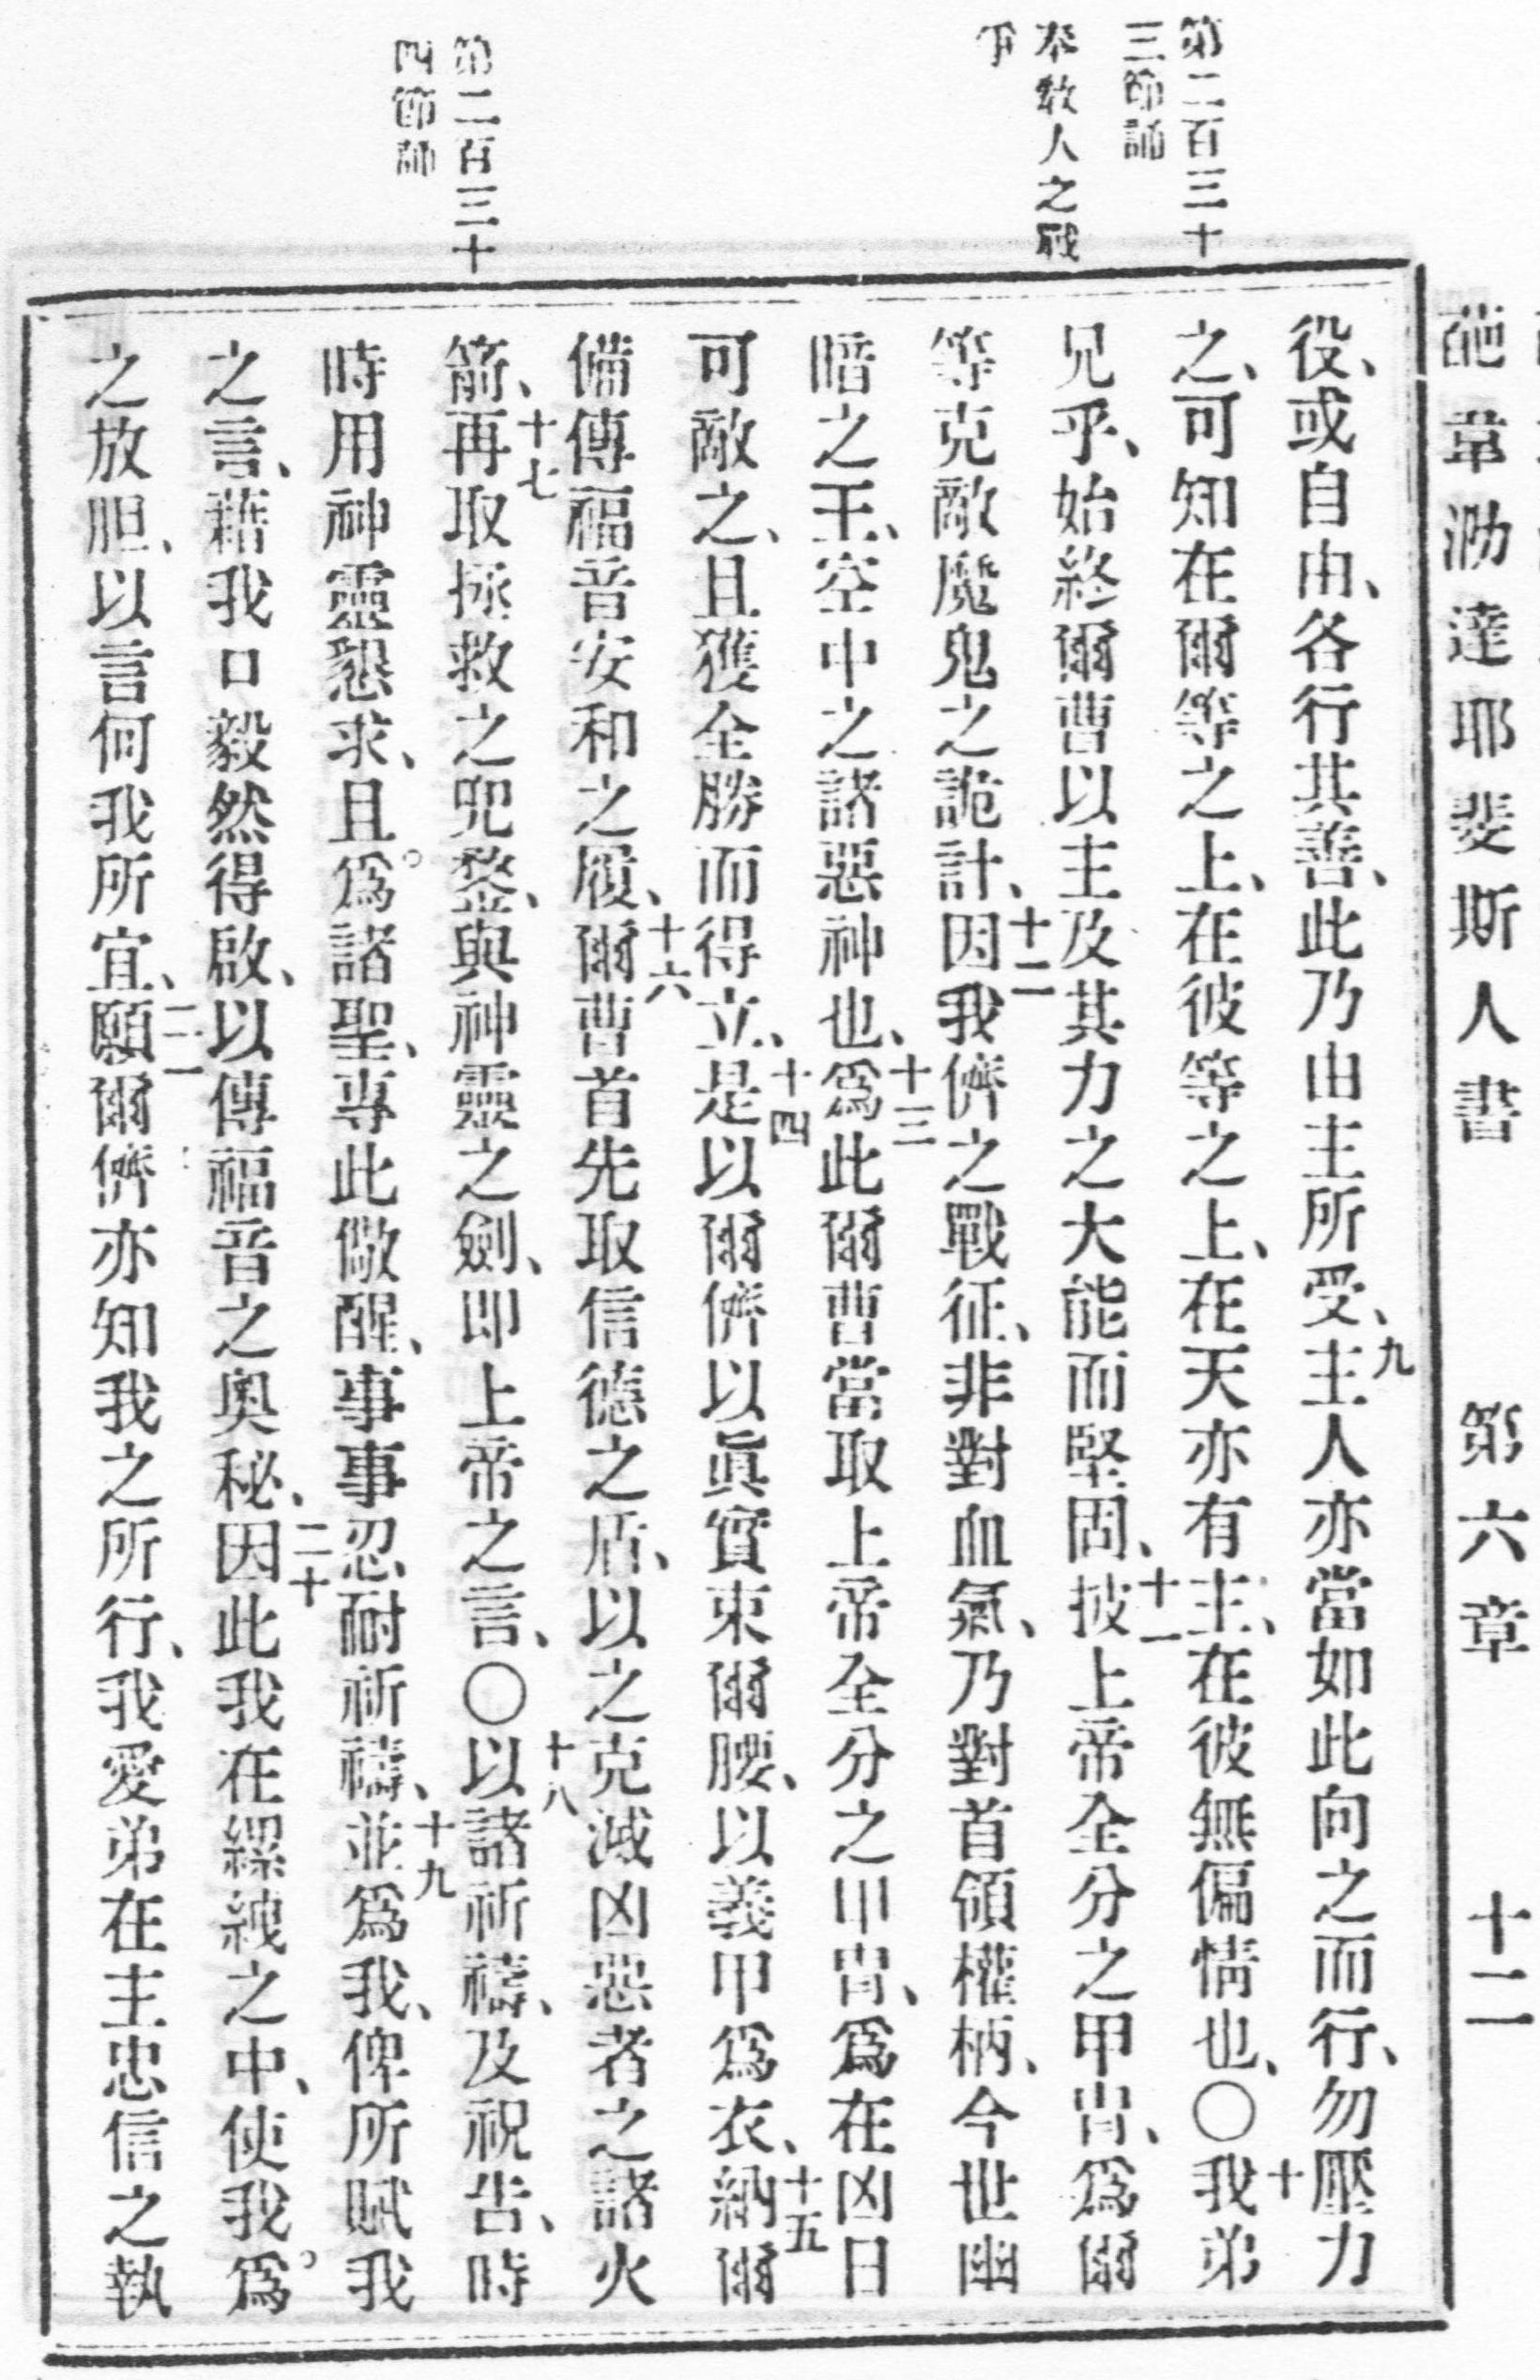 葩韋泐達耶斐斯人書 第六章 十二
第二百三十
三節誦
奉教人之戰
爭
第二百三十
四節誦
役、或自由、各行其善、此乃由主所受、九主人亦當如此向之而行、勿壓力
之、可知在爾等之上、在彼等之上、在天亦有主、在彼無偏情也、〇十我弟
兄乎、始終爾曹以主及其力之大能而堅固、十一披上帝全分之甲冑、爲爾
等克敵魔鬼之詭計、十二因我儕之戰征、非對血氣、乃對首領權柄、今世幽
暗之王、空中之諸惡神也、十三爲此爾曹當取上帝全分之甲冑、爲在凶日
可敵之、且獲全勝而得立、十四是以爾儕以眞實束爾腰、以義甲爲衣、十五納爾
備傳福音安和之履、十六爾曹首先取信德之盾、以之克滅凶惡者之諸火
箭、十七再取拯救之兜鍪、與神靈之劍、即上帝之言、〇十八以諸祈禱、及祝告、時
時用神靈懇求、且爲諸聖、專此儆醒、事事忍耐祈禱、十九並爲我、俾所賦我
之言、藉我口毅然得啟、以傳福音之奧秘、二十因此我在縲絏之中、使我爲
之放胆、以言何我所宜、二一願爾儕亦知我之所行、我愛弟在主忠信之執